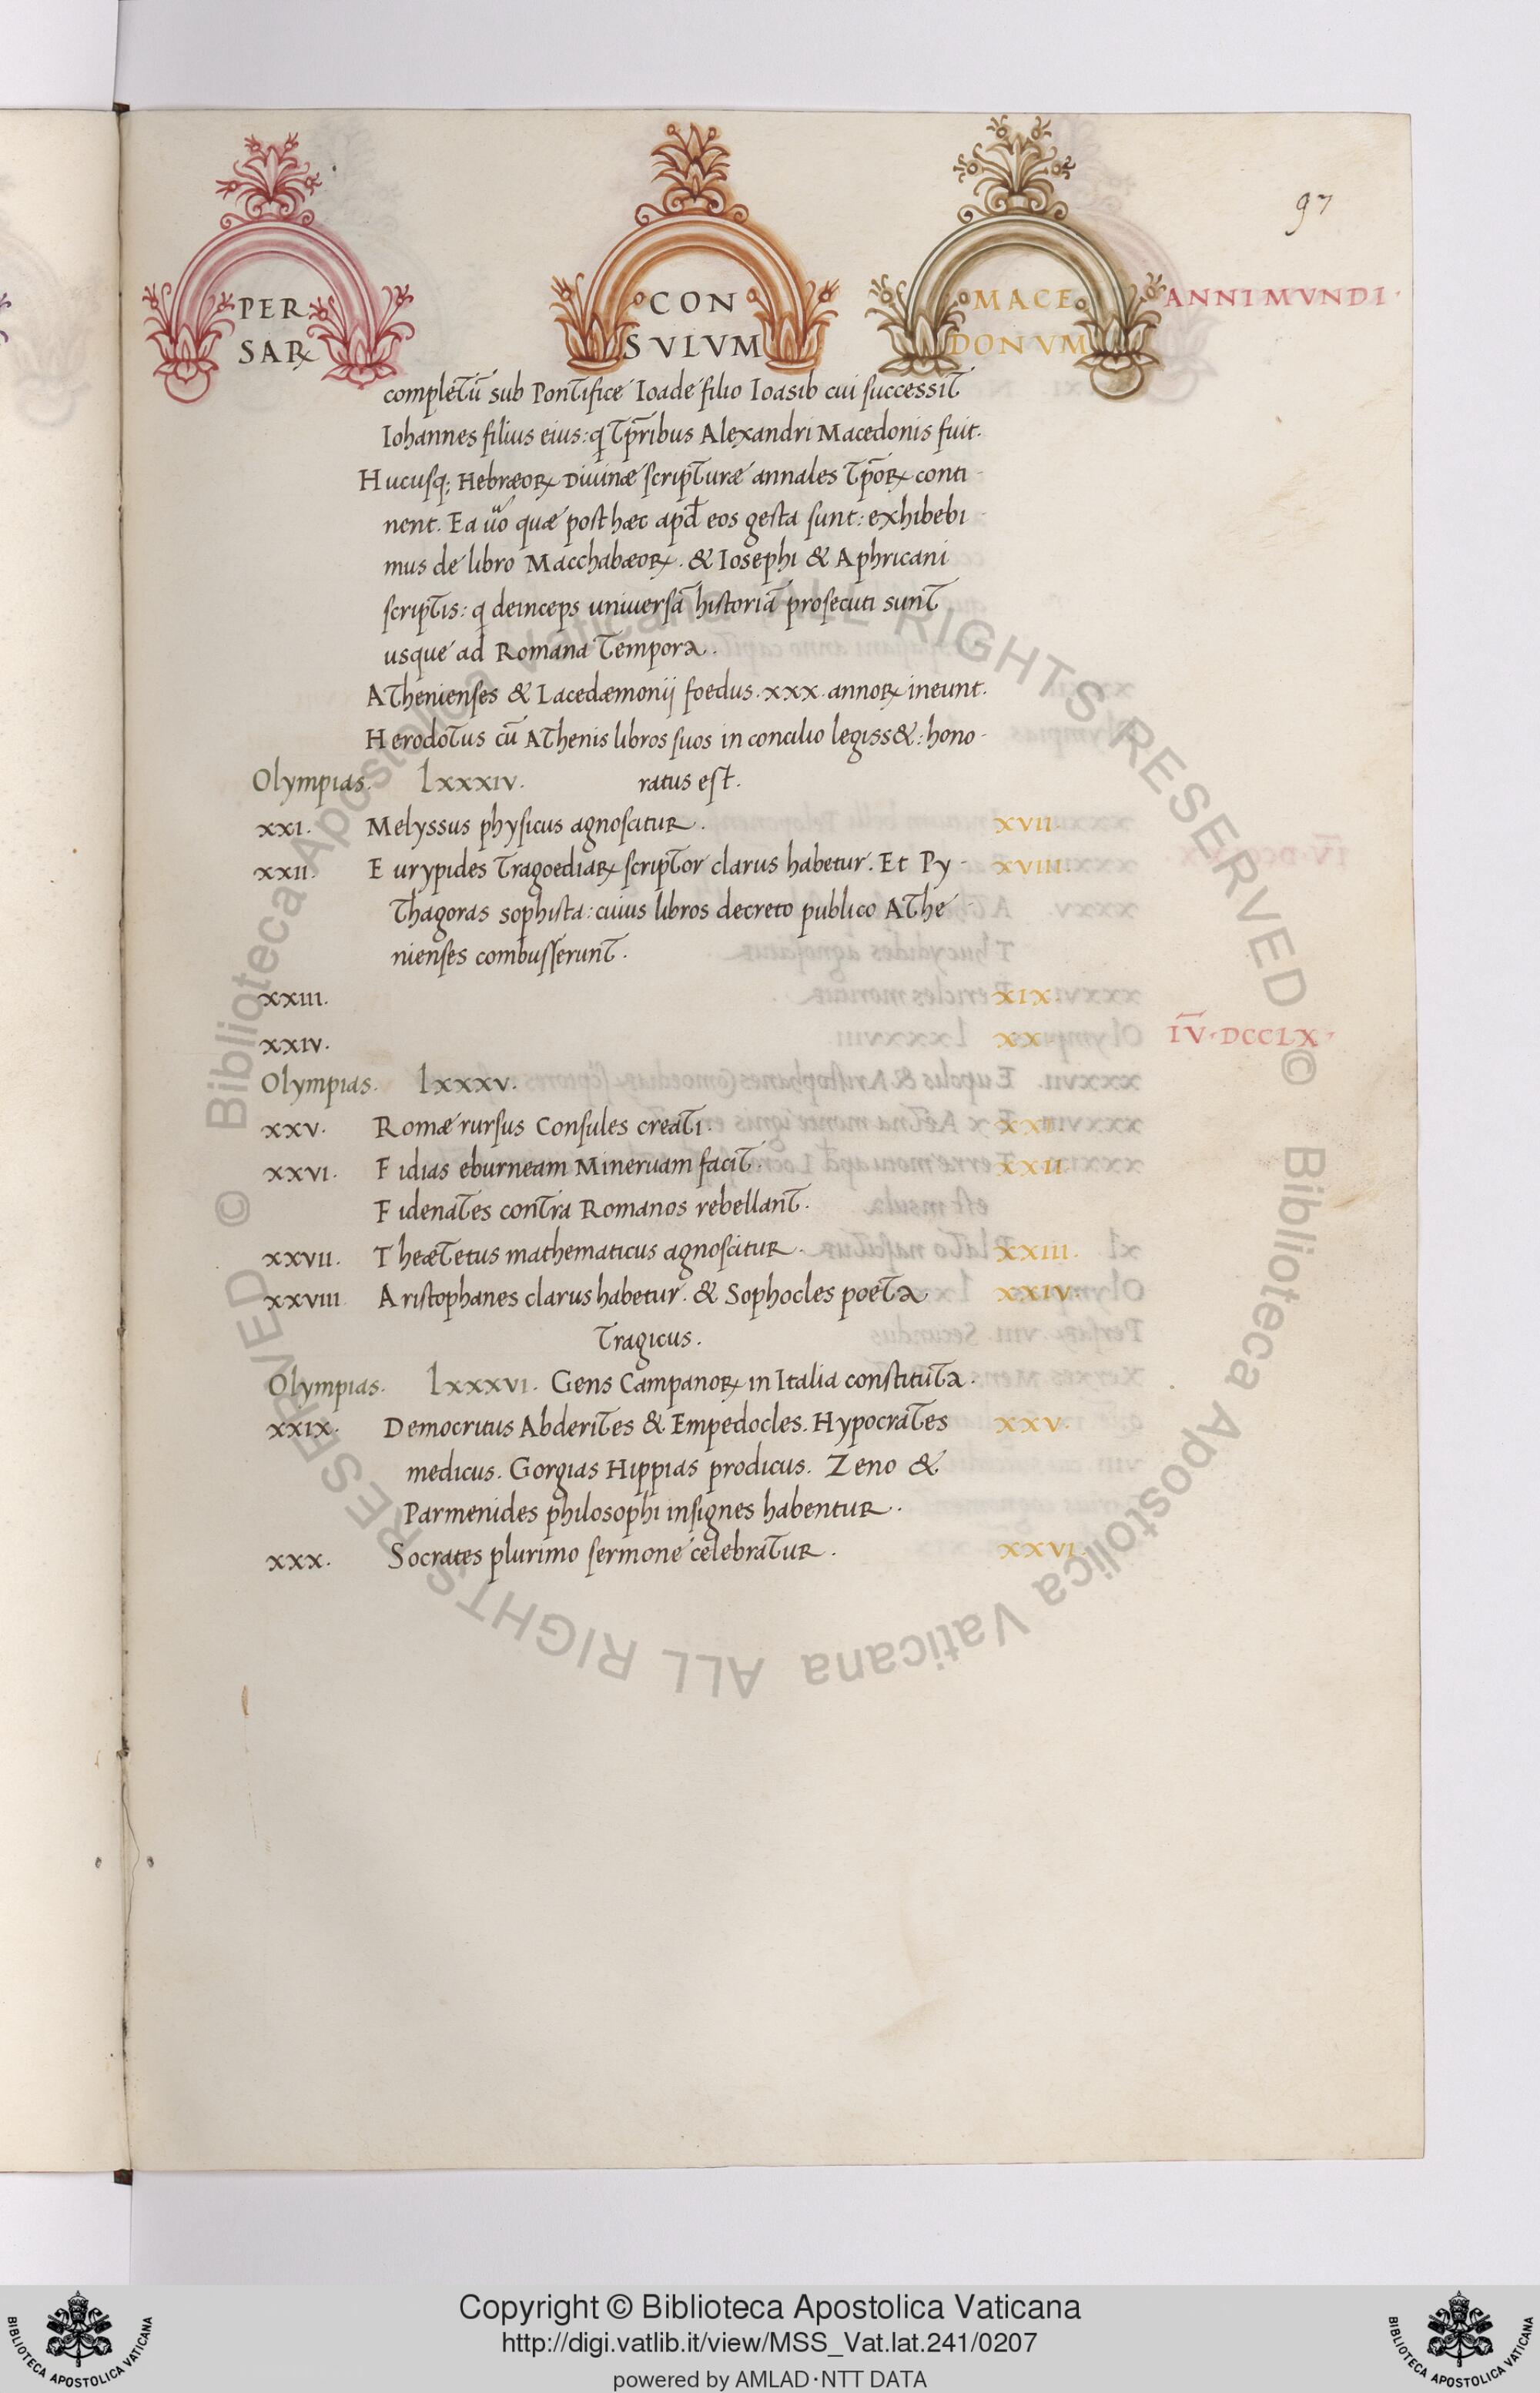 97
PER
SAꝜ
CON
SVLVM
MACE
DONVM
ANNI MVNDI.
completū sub Pontifice Ioade filio Ioasib cui successit
Iohannes filius eius: q tp̄ribus Alexandri Macedonis fuit.
Hucusq; Hebræoꝝ Diuinæ scripturæ annales tp̄oꝝ conti-
nent. Ea u̅o quæ post hæc apd̄ eos gesta sunt: exhibebi-
mus de libro Macchabæoꝝ. & Iosephi & Aphricani
scriptis: q deinceps uniuersā historiā prosecuti sunt
usque ad Romana tempora.
Athenienses & Lacedæmonij foedus. xxx. annoꝝ ineunt.
Herodotus cū Athenis libros suos in concilio legiss&: hono-
Olympias. lxxxiv. ratus est.
xxi. Melyssus physicus agnoscitur. xvii.
xxii. Eurypides tragoediaꝝ scriptor clarus habetur. Et Py- xviii.
thagoras sophista: cuius libros decreto publico Athe-
nienses combusserunt.
xxiii. xix.
xxiv. xx. IV̅.DCCLX.
Olympias. lxxxv.
xxv. Romæ rursus Consules creati.
xxvi. Fidias eburneam Mineruam facit. xxii.
Fidenates contra Romanos rebellant.
xxvii. Theætetus mathematicus agnoscitur. xxiii.
xxviii. Aristophanes clarus habetur. & Sophocles poeta xxiv.
tragicus.
Olympias. lxxxvi. Gens Campanoꝝ in Italia constituta.
xxix. Democritus Abderites & Empedocles. Hypocrates xxv.
medicus. Gorgias Hippias prodicus. Zeno &
Parmenides philosophi insignes habentur.
xxx. Socrates plurimo sermone celebratur. xxvi.
© Biblioteca Apostolica Vaticana ALL RIGHTS RESERVED © Biblioteca Apostolica Vaticana ALL RIGHTS RESERVED
Copyright © Biblioteca Apostolica Vaticana
http://digi.vatlib.it/view/MSS_Vat.lat.241/0207
powered by AMLAD·NTT DATA
BIBLIOTECA APOSTOLICA VATICANA
BIBLIOTECA APOSTOLICA VATICANA